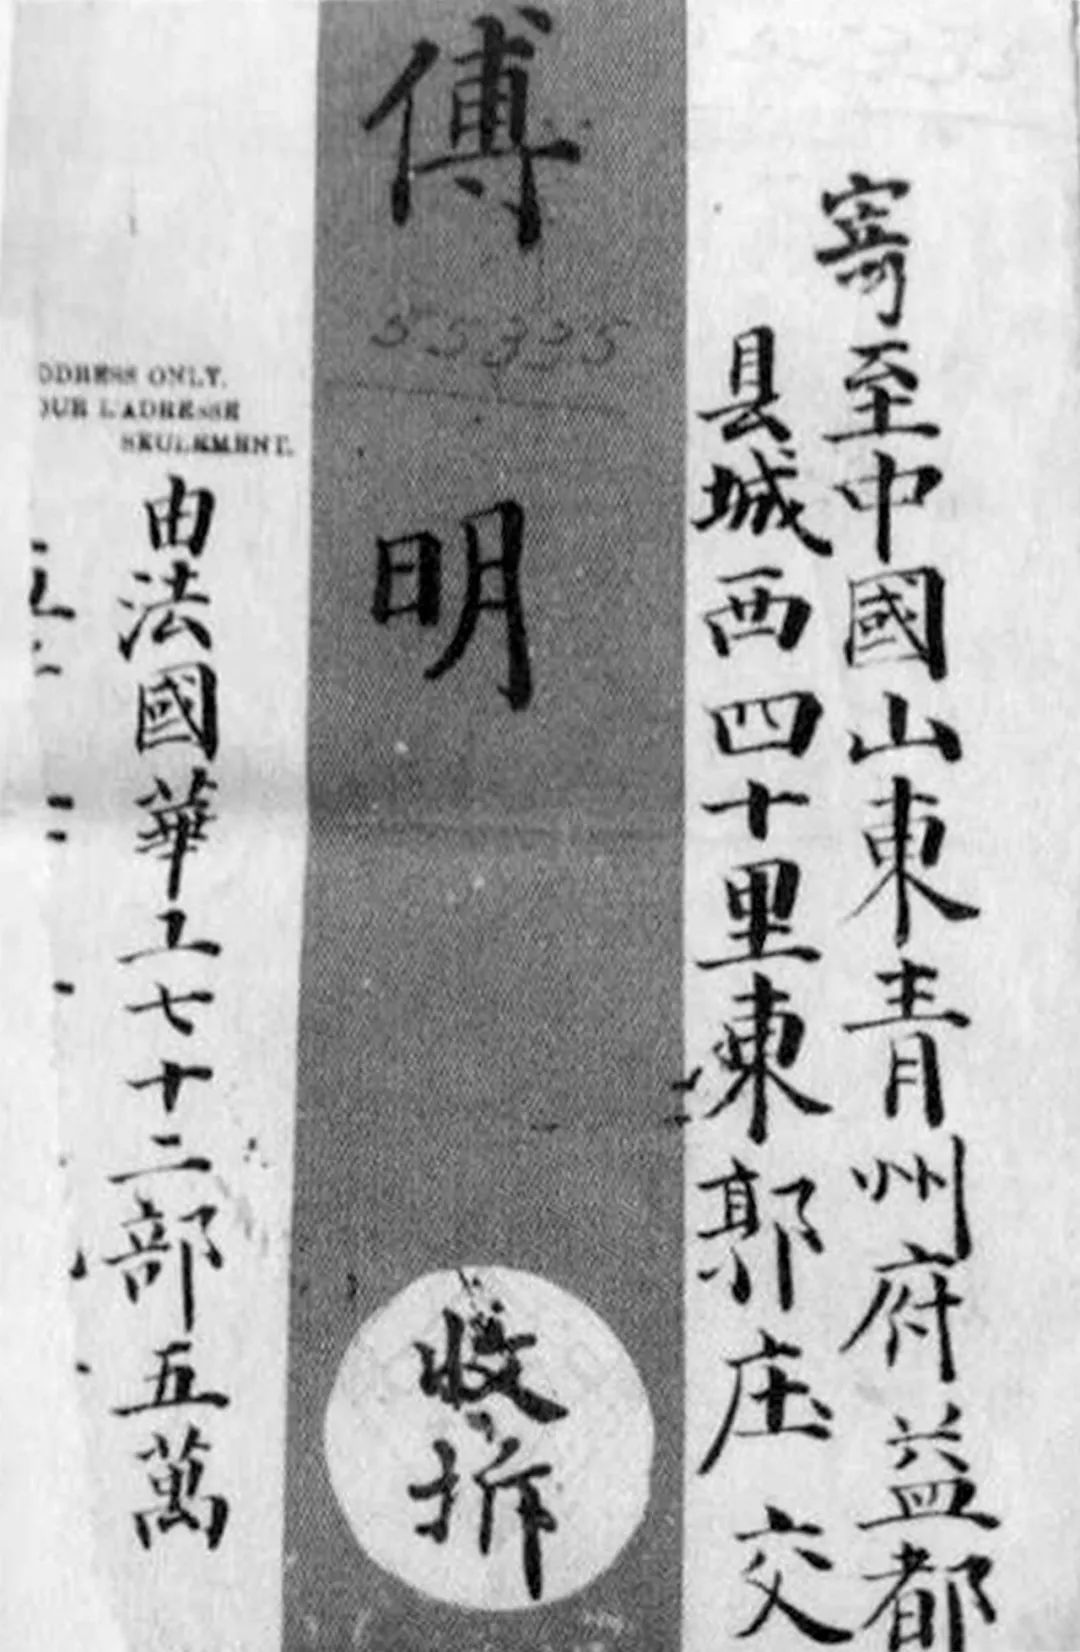 寄至中國山東青州府益都
县城西四十里東郭庄交
傅明
55335
收拆
DDRESS ONLY.
OUR L'ADRESSE
SEULEMENT.
由法國華工七十二部五萬